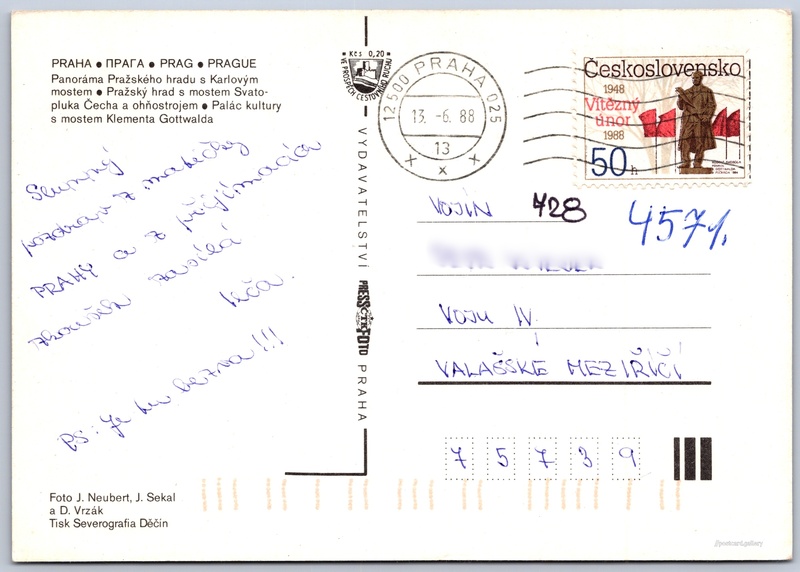 PRAHA ● ПРАГА ● PRAG ● PRAGUE
Panoráma Pražského hradu s Karlovým
mostem ● Pražský hrad s mostem Svato-
pluka Čecha a ohňostrojem ● Palác kultury
s mostem Klementa Gottwalda
Slunný
pozdrav z matičky
PRAHY a z přijímacích
zkoušek zasílá
PS: Je tu bezva!!!
Foto J. Neubert, J. Sekal
a D. Vrzák
Tisk Severografia Děčín
Kčs 0,20
VE PROSPĚCH CESTOVNÍHO RUCHU
VYDAVATELSTVÍ PRESSFOTO PRAHA
ČTK
12500 PRAHA 025
13. -6. 88
13
x
Československo
1948
Vítězný
únor
1988
50 h
VOJÍN 728
457/1.
VOJU IV.
VALAŠSKÉ MEZIŘÍČÍ
7 5 7 3 9
//postcard.gallery